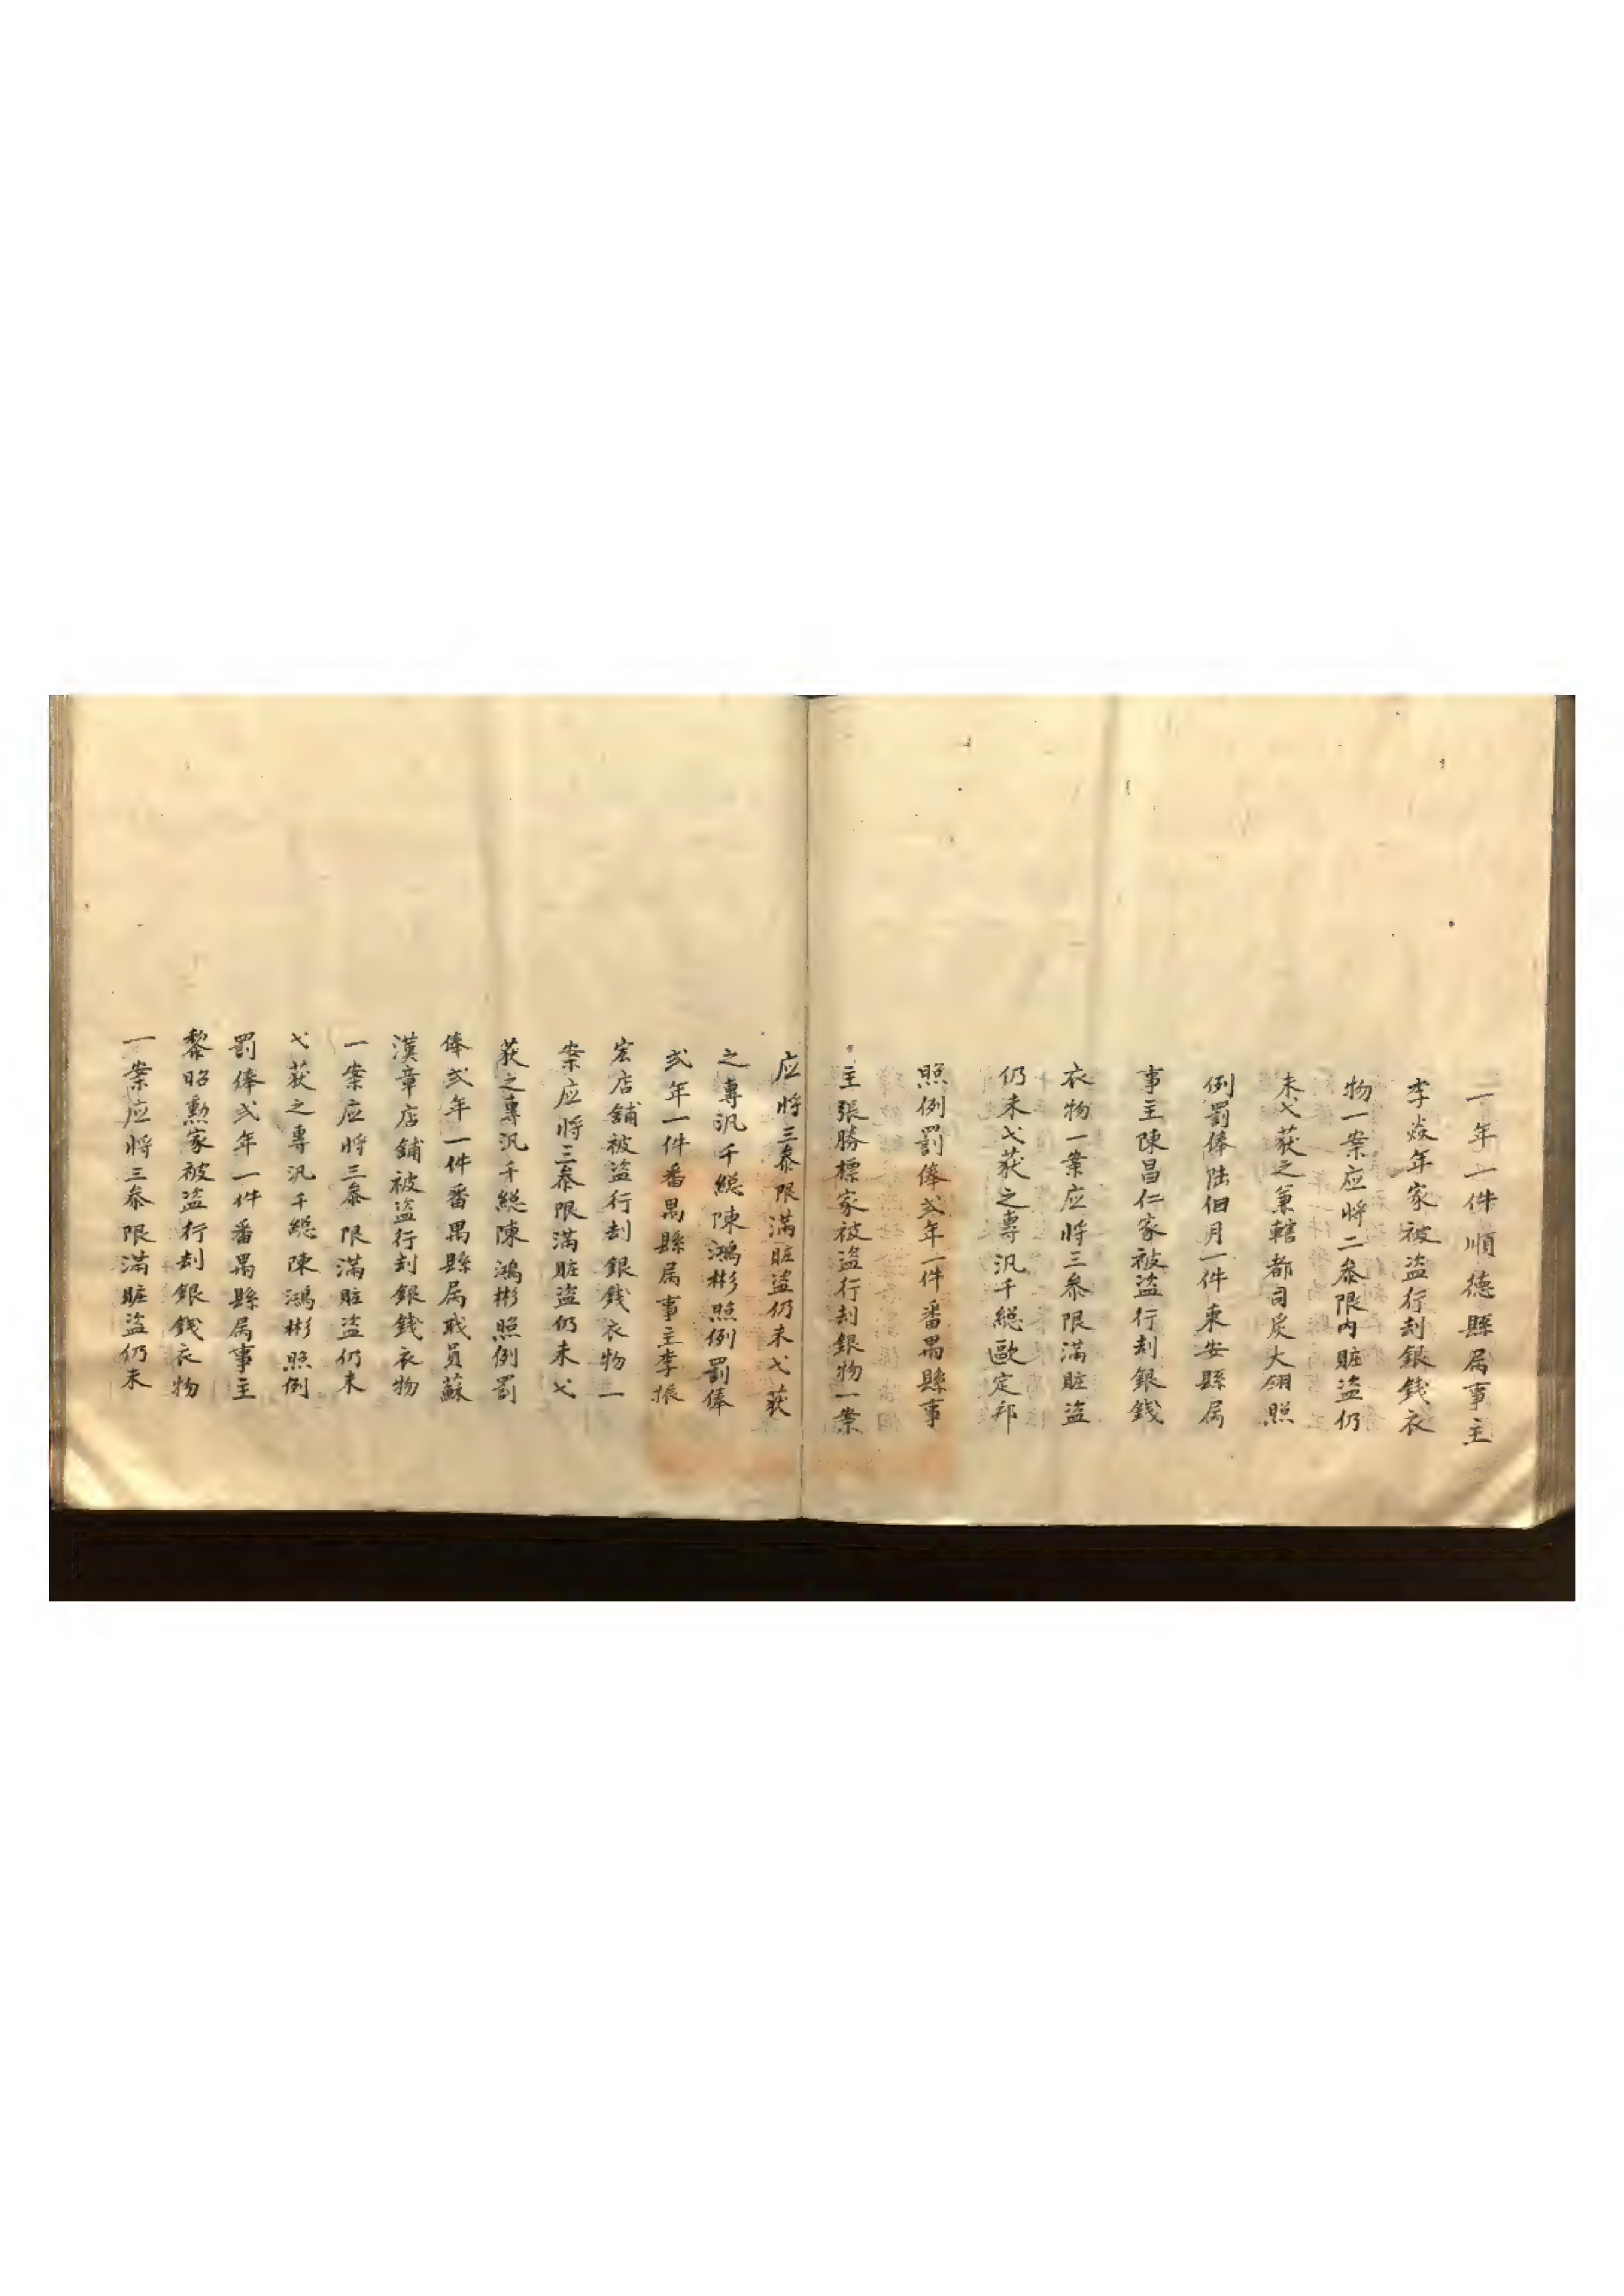 二年一件順德縣属事主
李焱年家被盗行刦銀錢衣
物一案应將二叅限内賍盗仍
未弋获之兼轄都司戻大翎照
例罰俸陆佪月一件東安縣属
事主陳昌仁家被盗行刦銀錢
衣物一案应將三叅限滿賍盗
仍未弋获之專汛千総歐定邦
照例罰俸弍年一件番禺縣事
主張勝標家被盗行刦銀物一案
应將三叅限滿賍盗仍未弋获
之專汛千総陳鴻彬照例罰俸
弍年一件番禺縣属事主李振
宏店舖被盗行刦銀錢衣物一
案应將三叅限滿賍盗仍未弋
获之專汛千総陳鴻彬照例罰
俸弍年一件番禺縣属戝員蘇
漢章店舖被盗行刦銀錢衣物
一案应將三叅限滿賍盗仍未
弋获之專汛千総陳鴻彬照例
罰俸弍年一件番禺縣属事主
黎昭勳家被盗行刦銀錢衣物
一案应將三叅限滿賍盗仍未